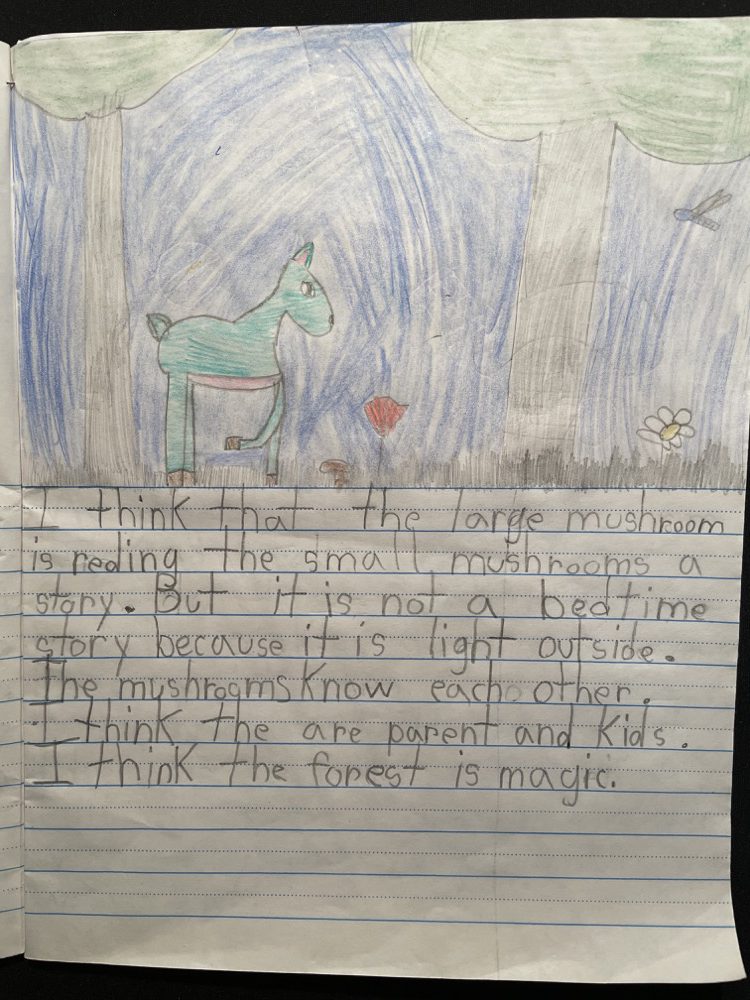 I think that the large mushroom
is reding the small mushrooms a
story. But it is not a bedtime
story because it is light outside.
The mushrooms know each other.
I think the are parent and kids.
I think the forest is magic.